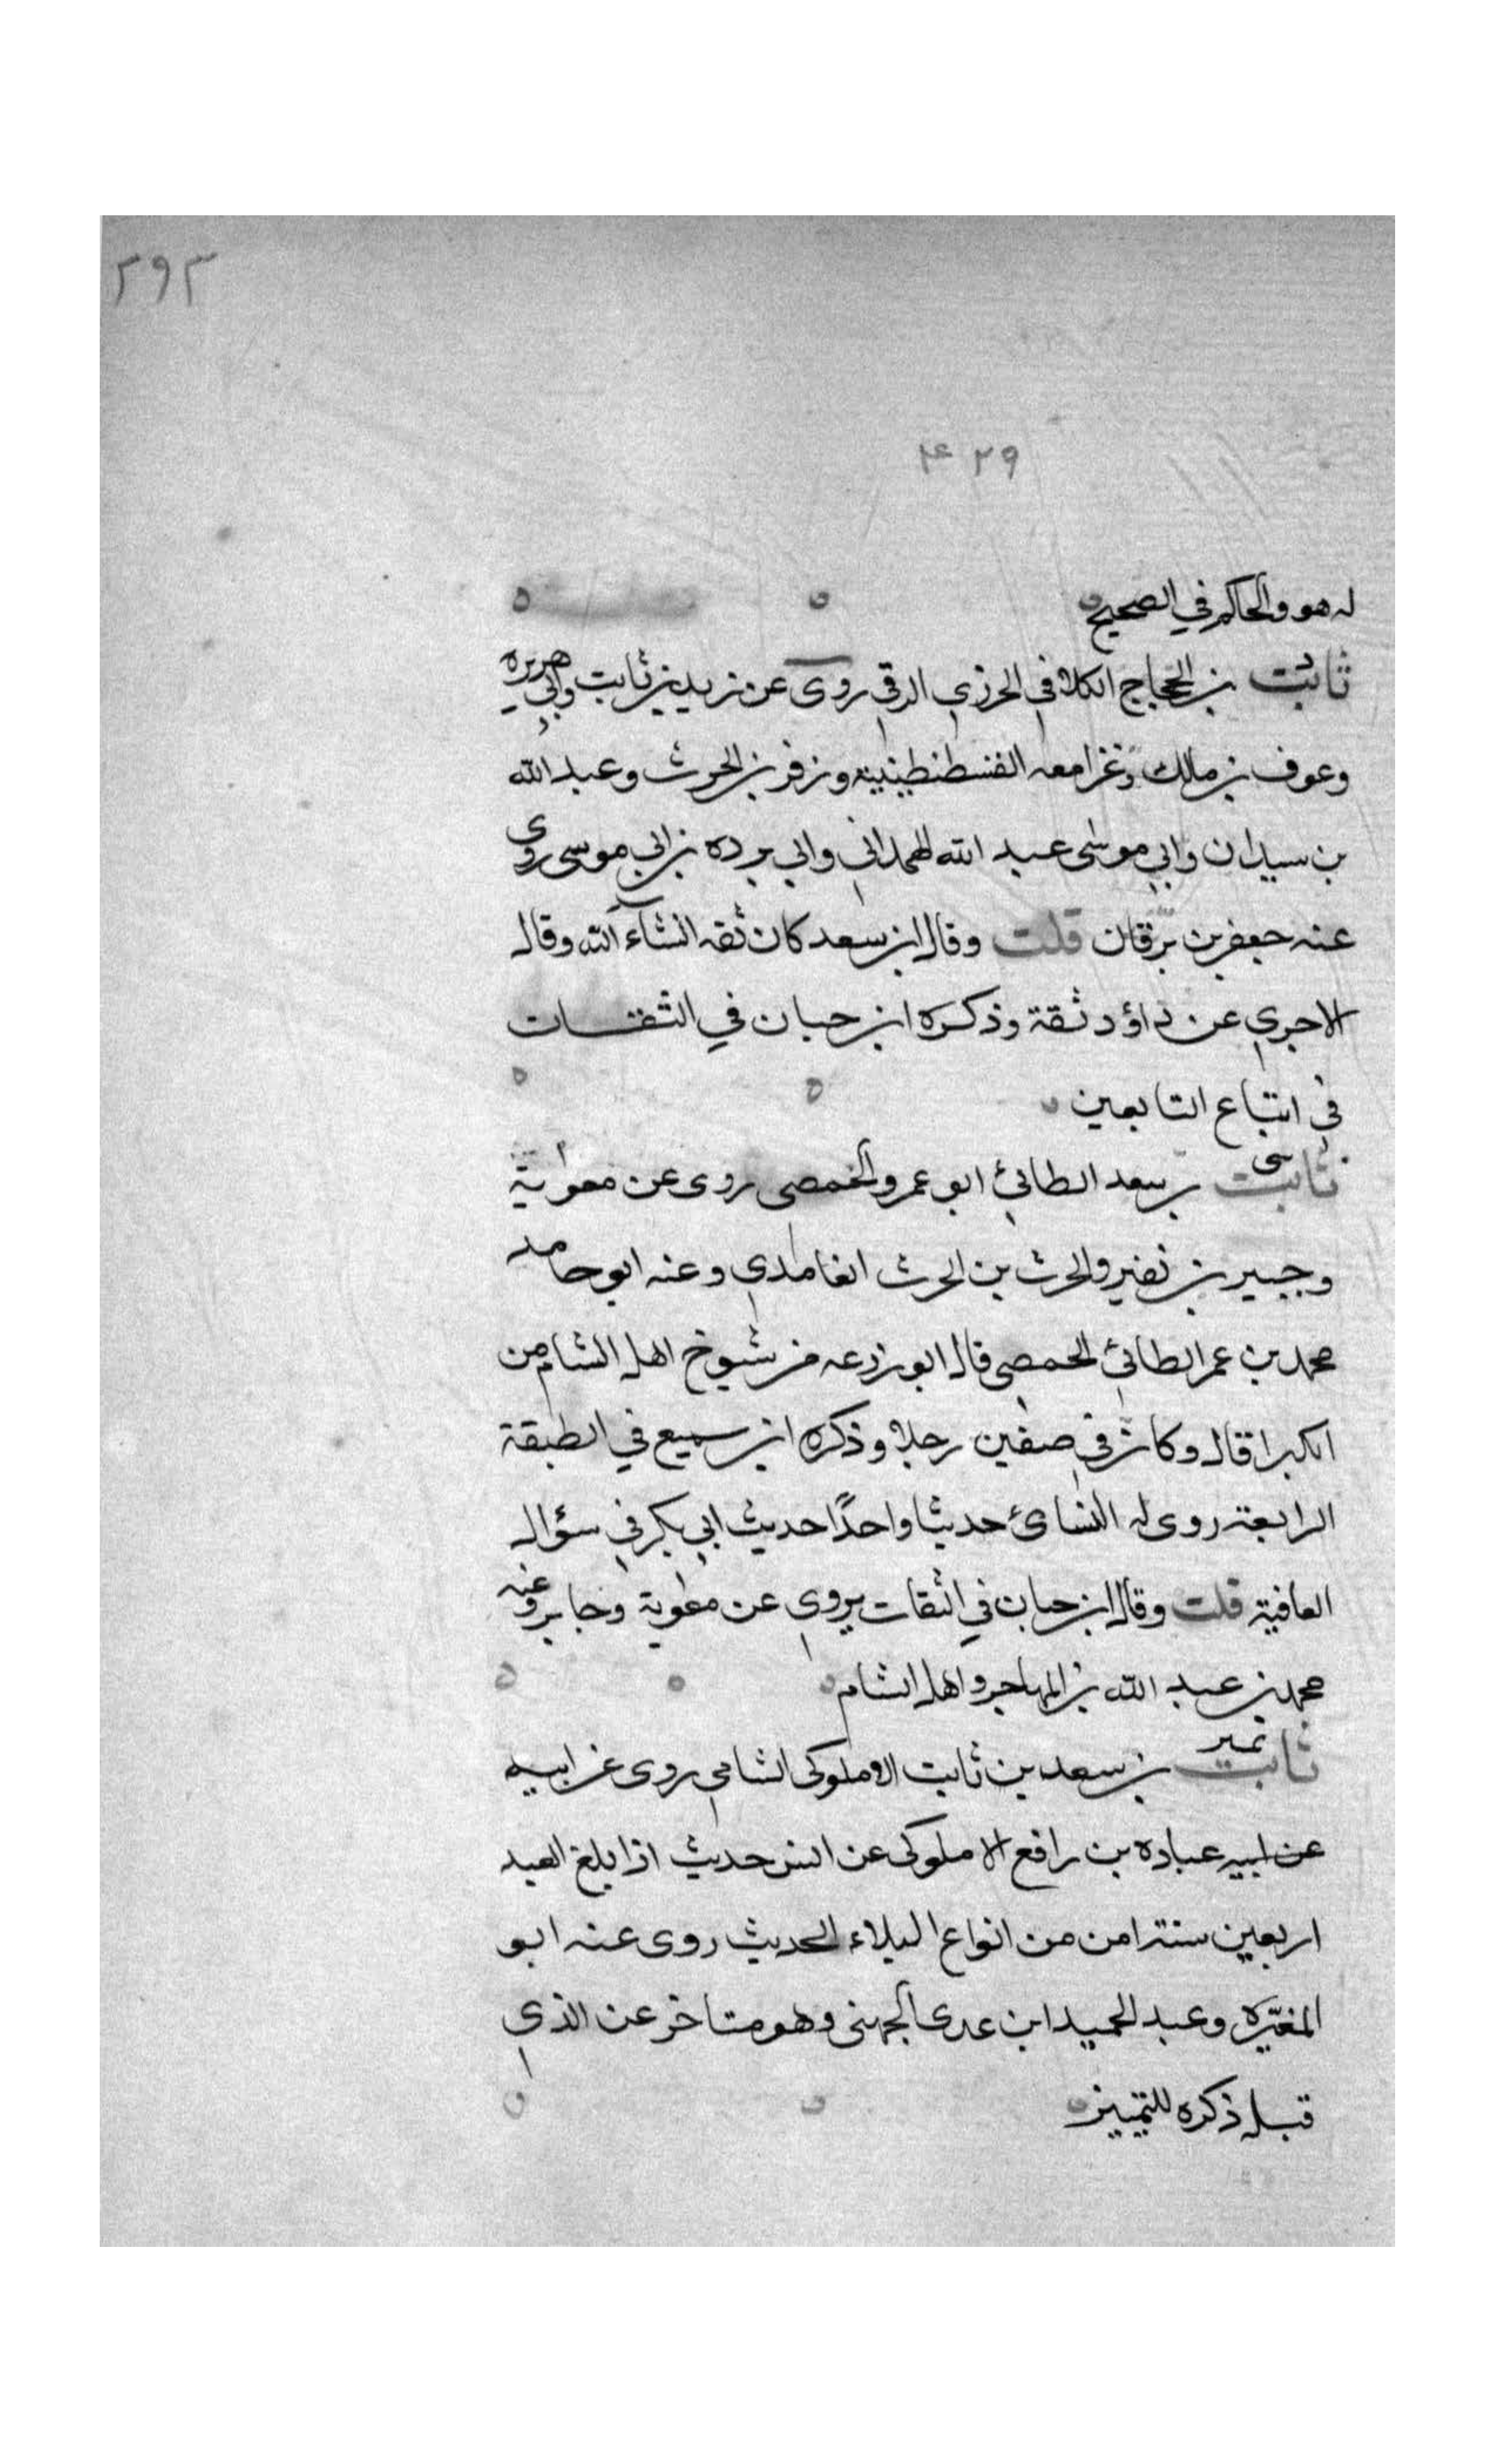 ٢٩٣
٤٢٩
له هو والحاكم في الصحيح
ثابت د بن الحجاج الكلابي الجزري الرقي روى عن زيد بن ثابت وابي هريره
وعوف بن مالك وغزا معه القسطنطينية وزفر بن الحرث وعبد الله
بن سيدان وابي موسى عبد الله الهمداني وابي برده بن ابي موسى روى
عنه جعفر بن برقان قلت وقال ابن سعد كان ثقه انشآء الله وقال
الاجري عن داؤد ثقة وذكره ابن حبان في الثقات
في اتباع التابعين
ثابت سى بن سعد الطائي ابو عمرو الحمصي روى عن معوية
وجبير بن نفير والحرث بن الحرث الغامدي وعنه ابو حامد
محمد بن عمر الطائي الحمصي قال ابو زرعه من شيوخ اهل الشام من
الكبرا قال وكان في صفين رجلا وذكره ابن سميع في الطبقة
الرابعة روى له النسائ حديثا واحدًا حديث ابي بكر في سؤال
العافية قلت وقال ابن حبان في الثقات يروي عن معوية وجابر وعنه
محمد بن عبد الله بن المهاجر واهل الشام
ثابت تمييز بن سعد بن ثابت الاملوكي الشامي روى عن ابيه
عن ابيه عباده بن رافع الاملوكي عن انس حديث اذا بلغ العبد
اربعين سنة امن من انواع البلاء الحديث روى عنه ابو
المغيره وعبد الحميد ابن عدي الجهني وهو متاخر عن الذي
قبله ذكره للتمييز